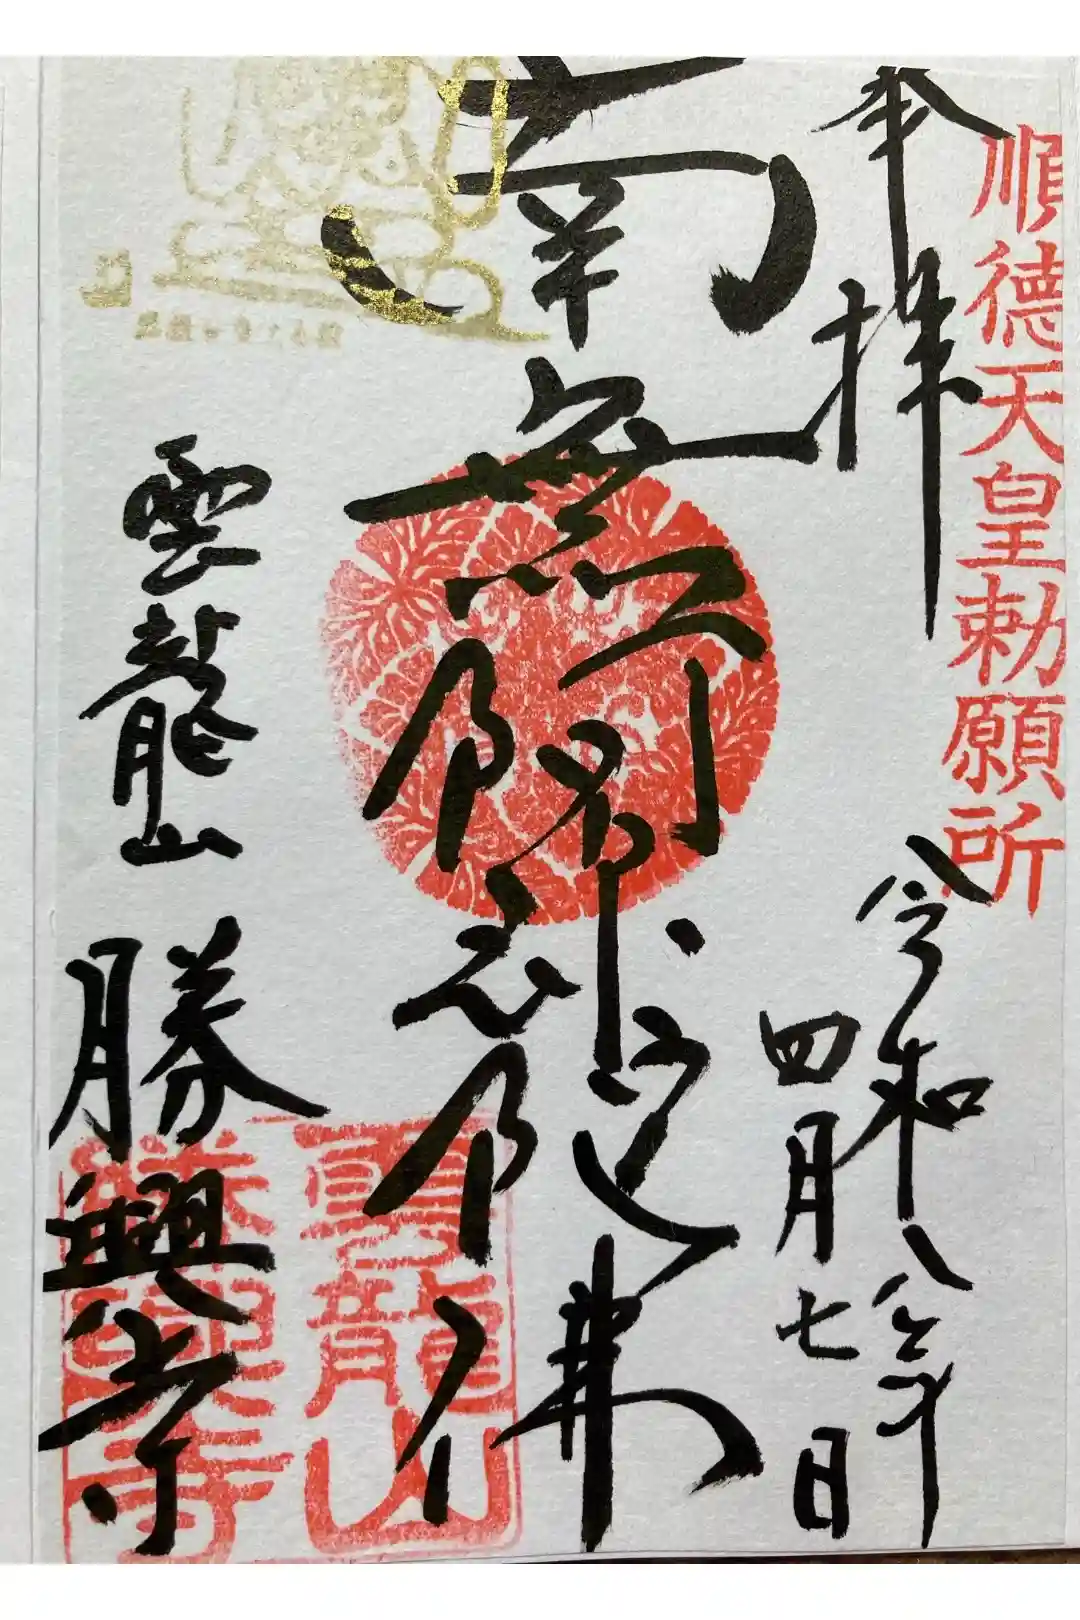 順徳天皇勅願所
奉拝
令和八年
四月七日
南無阿弥陀佛
雲龍山
勝興寺
雲龍山
勝興寺